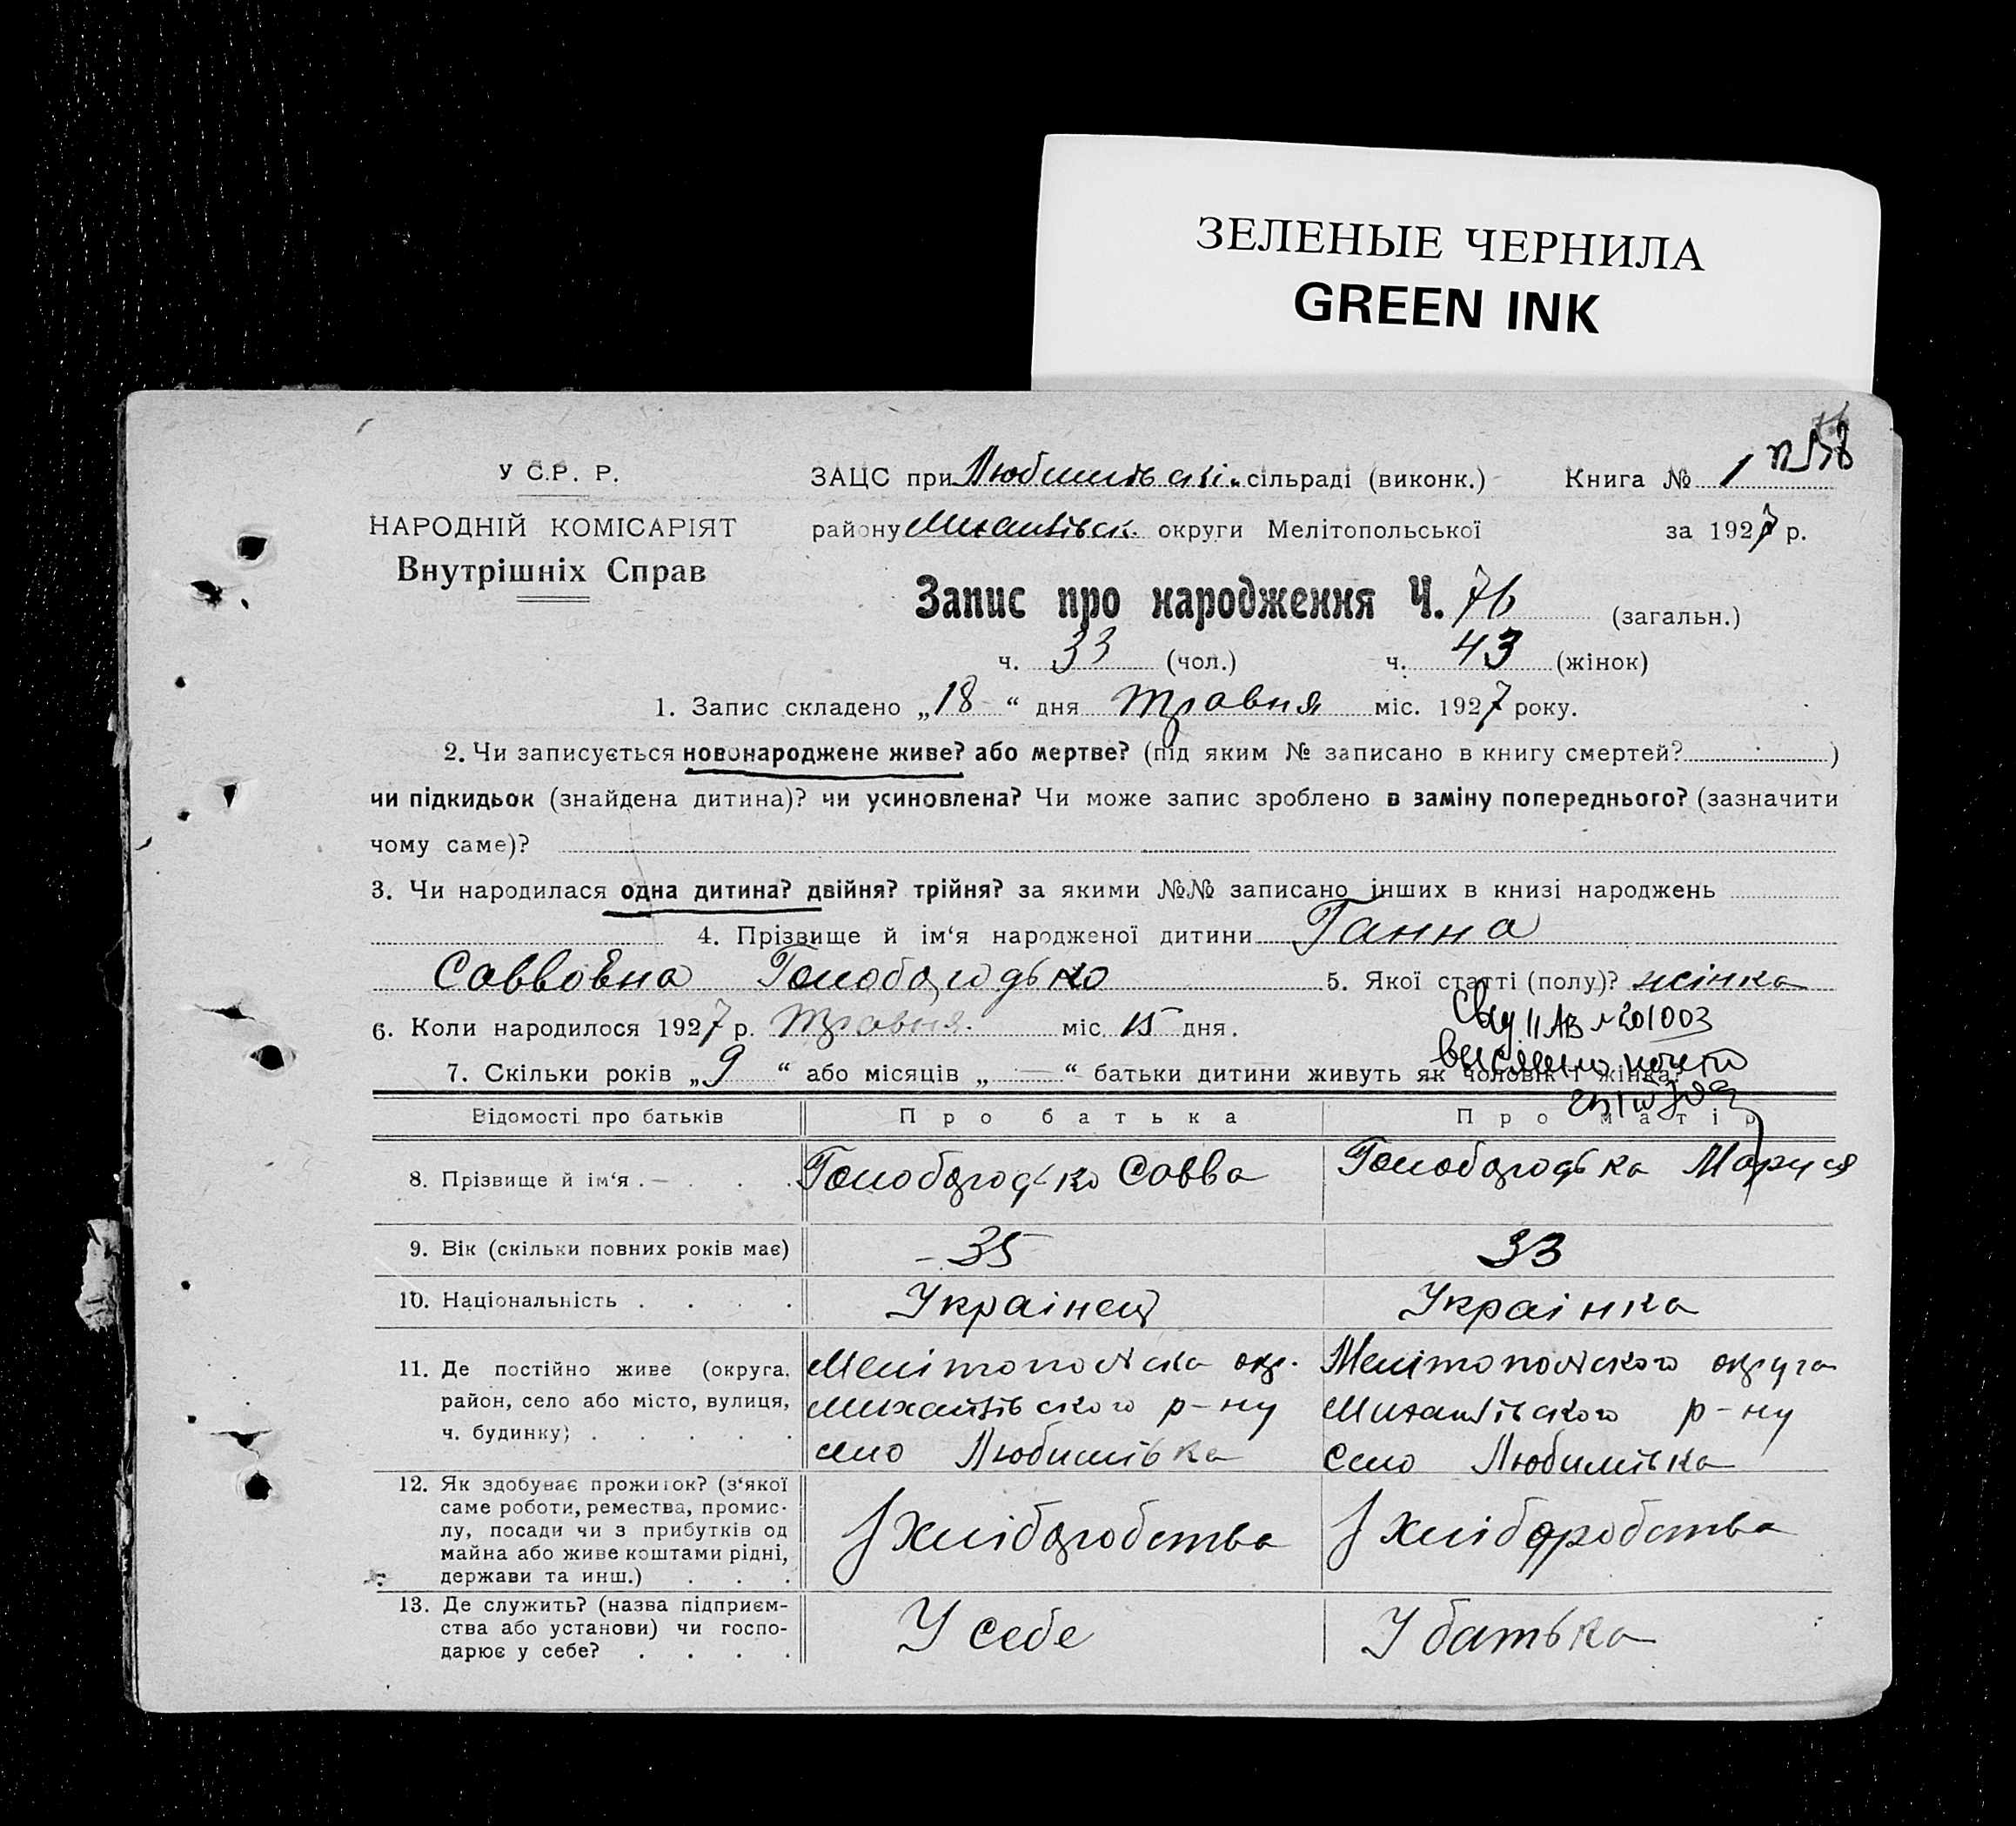 ЗЕЛЕНЫЕ ЧЕРНИЛА
GREEN INK
У С.Р. Р.
НАРОДНІЙ КОМІСАРІЯТ
Внутрішніх Справ
ЗАЦС при Любимівські. сільраді (виконк.) Книга № 1
району Михайлівськ. округи Мелітопольської за 1927 р.
Запис про народження Ч. 76 (загальн.)
ч. 33 (чол.) ч. 43 (жінок)
1. Запис складено „18“ дня травня міс. 1927 року.
2. Чи записується новонароджене живе? або мертве? (під яким № записано в книгу смертей? )
чи підкидьок (знайдена дитина)? чи усиновлена? Чи може запис зроблено в заміну попереднього? (зазначити
чому саме)?
3. Чи народилася одна дитина? двійня? трійня? за якими №№ записано інших в книзі народжень
4. Прізвище й ім‘я народженої дитини Ганна
Саввовна Голобородько 5. Якої статті (полу)? жінка
6. Коли народилося 1927 р. Травня. міс. 15 дня.
Свид II АВ № 201003
7. Скільки років „9“ або місяців „—“ батьки дитини живуть як чоловік і жінка?
Відомості про батьків Про батька Про матір
8. Прізвище й ім‘я Голобородько Савва Голобородька Маруся
9. Вік (скільки повних років має) 35 33
10. Національність Украінец Украінка
11. Де постійно живе (округа, район, село або місто, вулиця, ч. будинку)
Мелітопольска окр.
Михайлівского р-ну
село Любимівка
Мелітопольского округа
Михайлівского р-ну
Село Любимівка
12. Як здобуває прожиток? (з‘якої
саме роботи, ремества, промис-
лу, посади чи з прибутків од
майна або живе коштами рідні,
держави та инш.)
З хліборобства З хліборобства
13. Де служить? (назва підприєм-
ства або установи) чи госпо-
дарює у себе?
У себе У батька